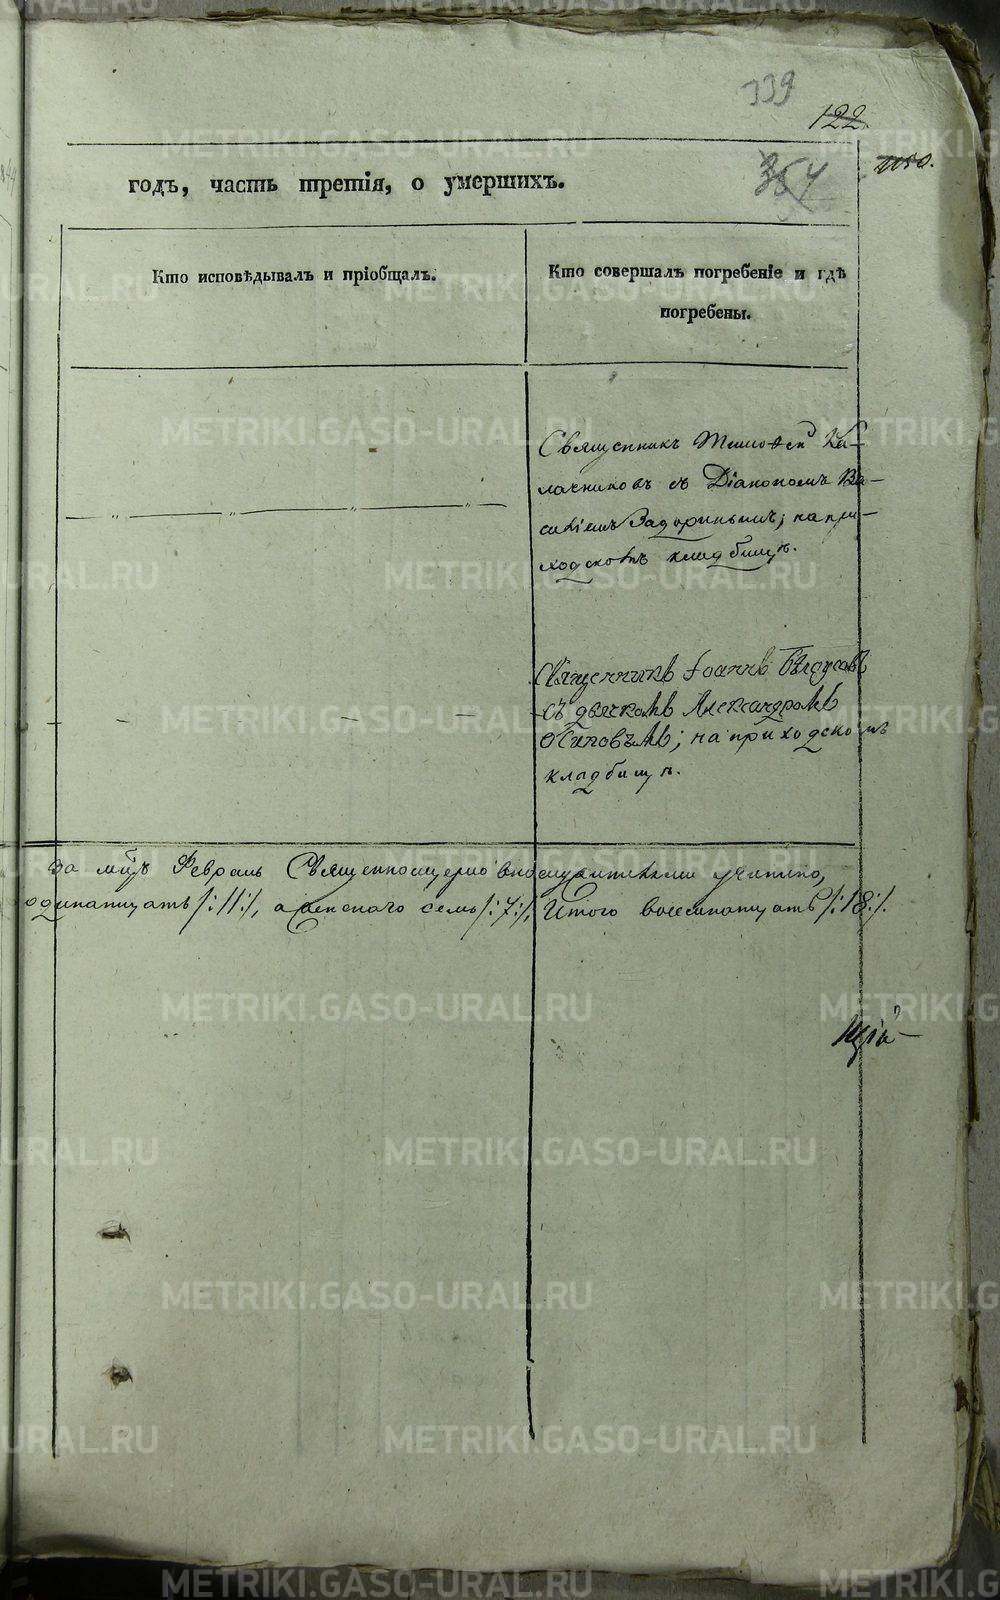 339
122.
годъ, часть третія, о умершихъ.
354
Кто исповѣдывалъ и пріобщалъ.
Кто совершалъ погребеніе и гдѣ
погребены.
Священникъ Тимоѳей Ка-
лачниковъ съ Діакономъ Ва-
силіемъ Задоринымъ; на при-
ходскомъ кладбищѣ.
Священникъ Іоаннъ Бѣлоусовъ
съ дьячкомъ Александромъ
Осиповымъ; на приходскомъ
кладбищѣ.
За мѣцъ Февраль Священноцерковнослужителями учтено,
одинатцать /:11:/, а женскаго семь /:7:/, Итого восемнатцать /:18:/.
METRIKI.GASO-URAL.RU